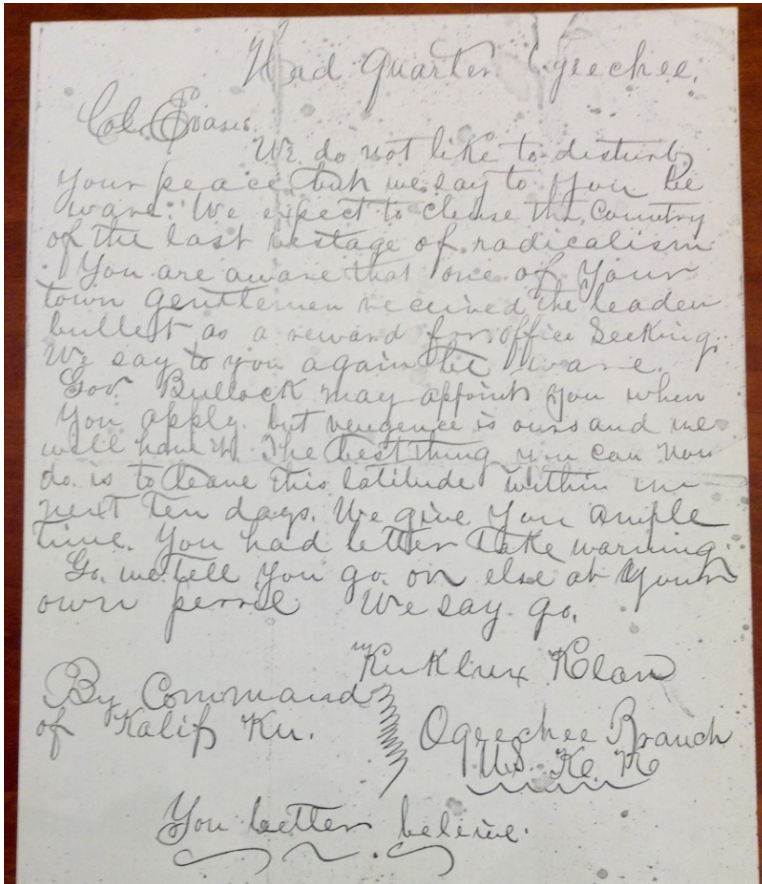 Head Quarter Ogeechee.
Col. Evans.
We do not like to disturb
your peace but we say to you be
ware. We expect to clense the Country
of the last vestage of radicalism
You are aware that one of your
town gentlemen received the leaden
bullet as a reward for office seeking.
We say to you again be ware.
Gov. Bullock may appoint you when
you apply. but vengence is ours and we
will have it. The best thing you can now
do. is to leave this latitude within
next ten days. We give you ample
time. You had better take warning.
Go. we tell you go. or else at your
own perrel We say. go.
KuKlux Klan
By Command
of Kalif Ku.
Ogeechee Branch
U.S. K. K
You better believe.